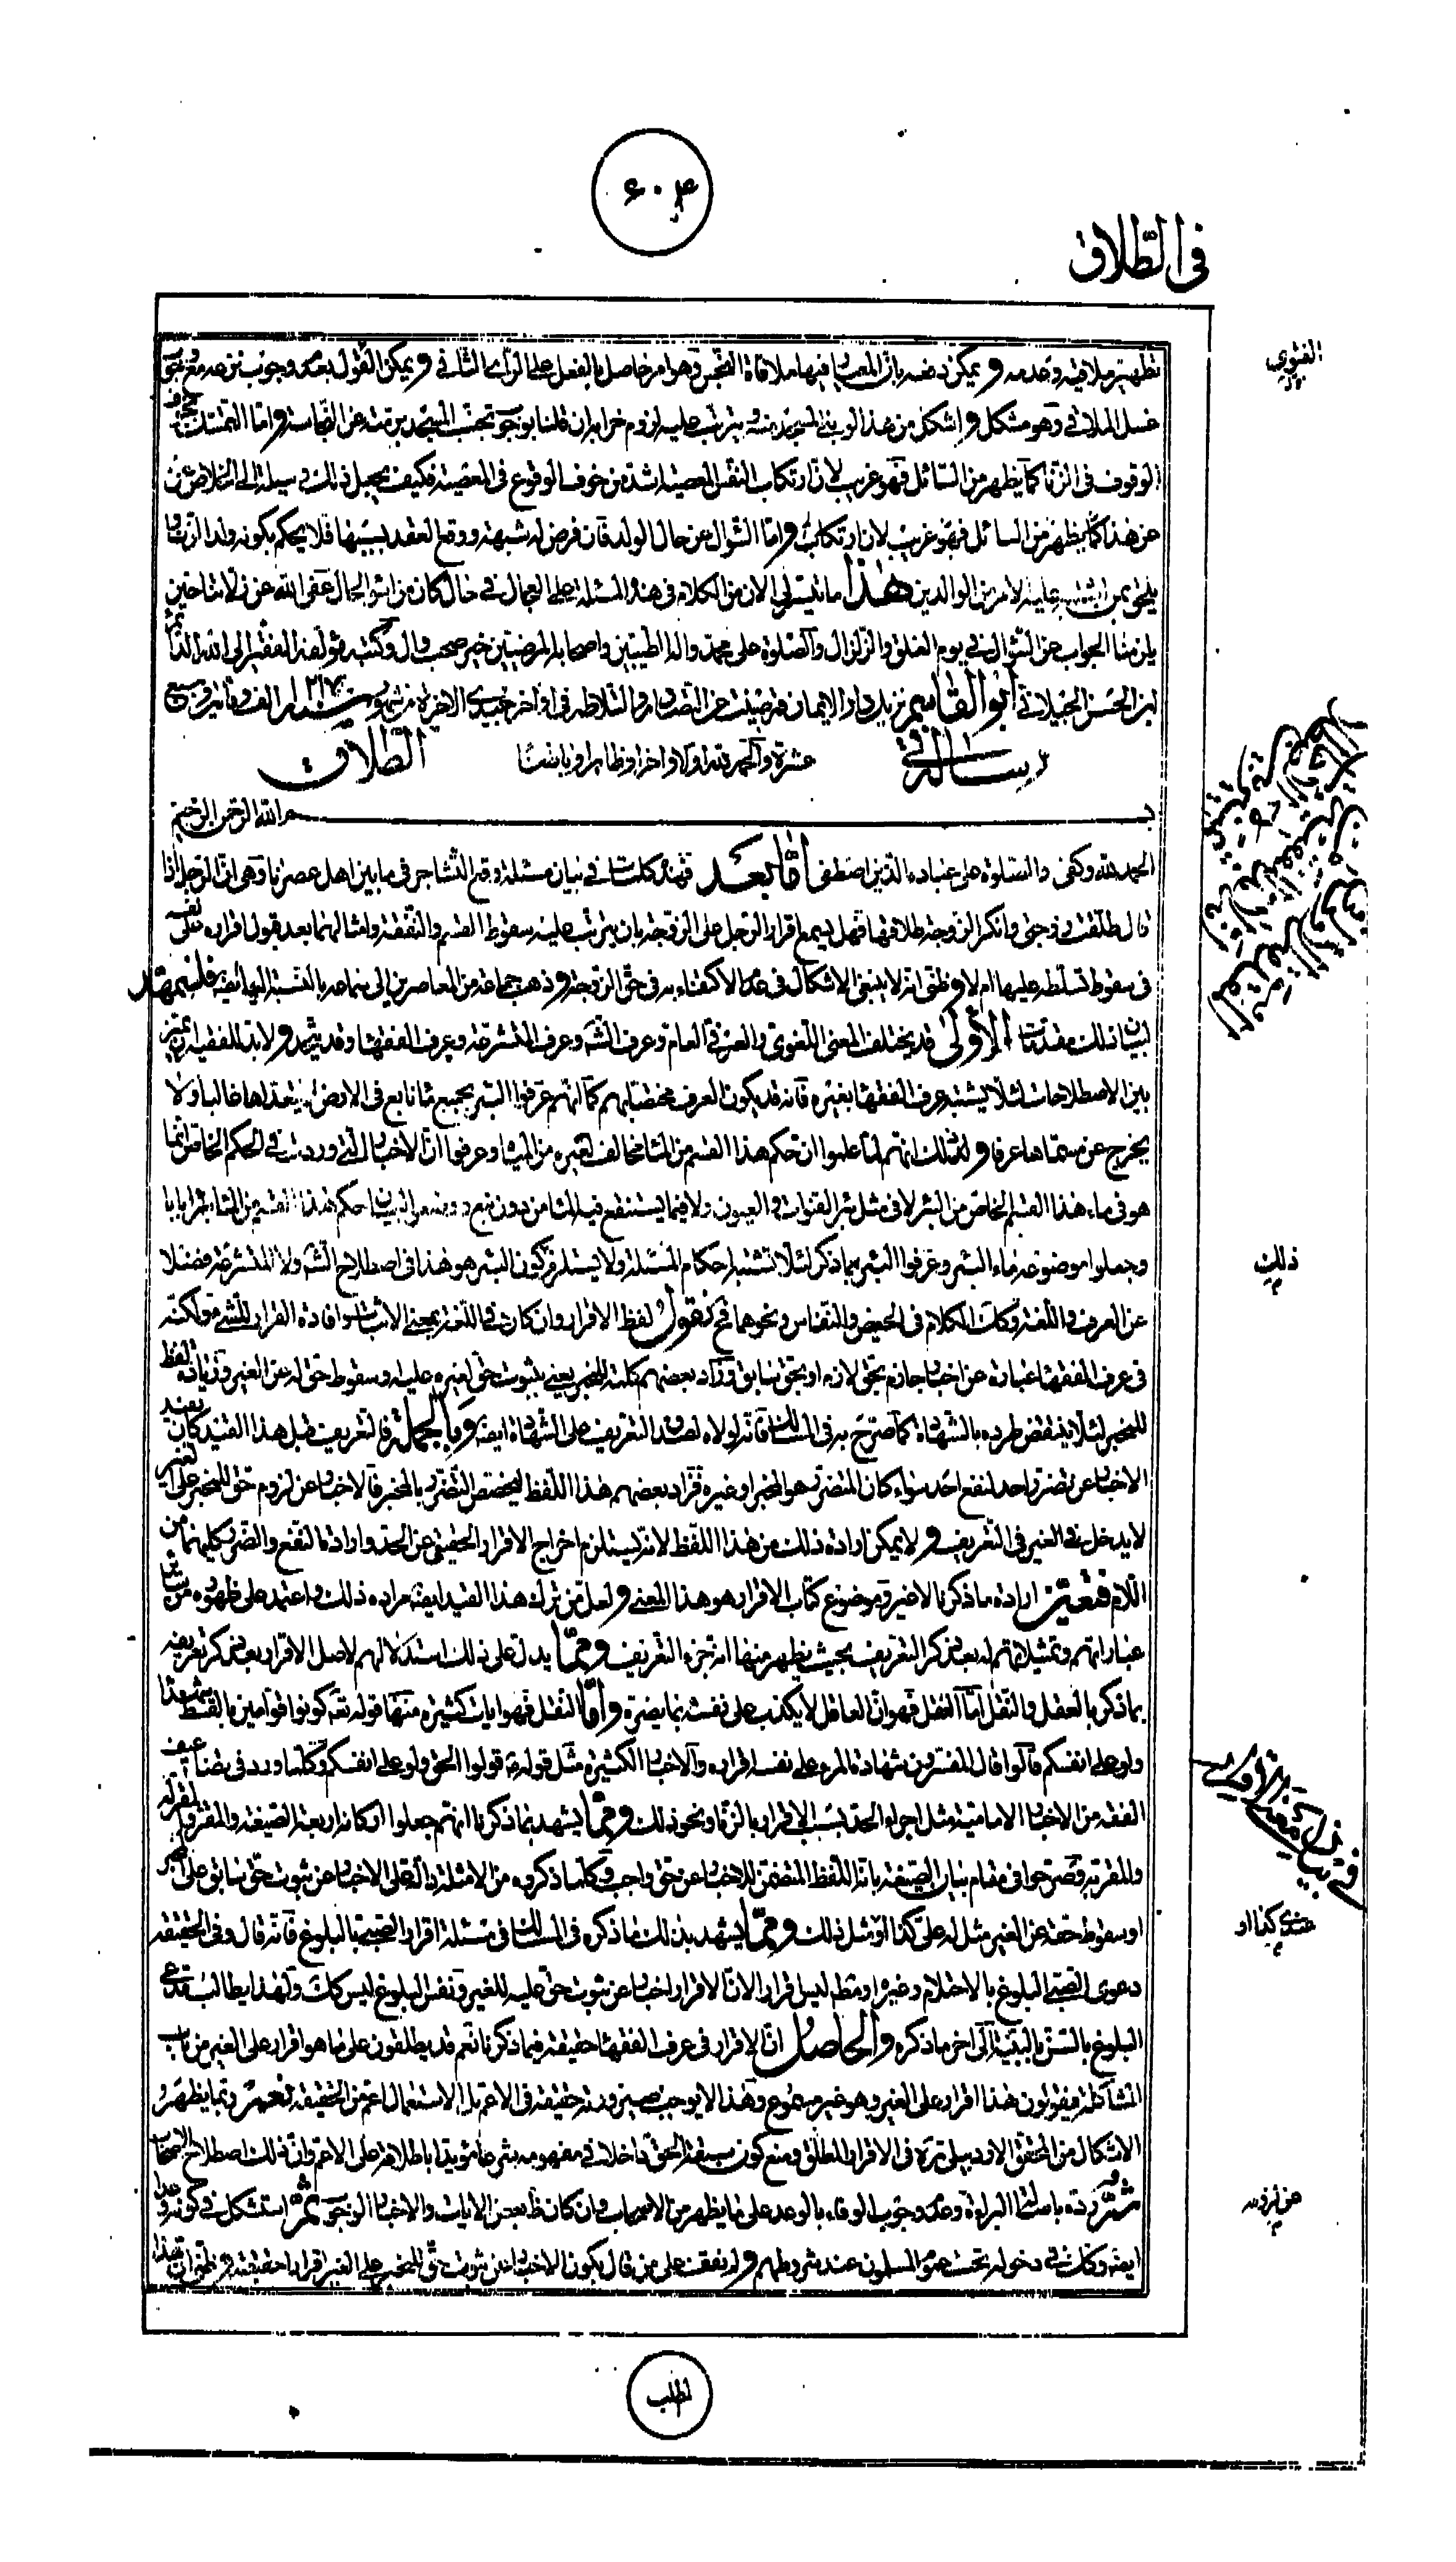 ۶۰۴
في الطّلاق
تطهير ملاقيه وعدمه ويمكن دفعه بان المعيار فيها ملاقاة النجس وهو امر حاصل بالفعل على الرأى الثانى ويمكن القول بعدم وجوب نزحه مع
غسل الملاقى وهو مشكل واشكل من هذا لو بنى المسجد منه ويترتب عليه لزوم خرابه ان قلنا بوجوب تجنب المسجد بن عن النجاسة وامّا التمسّك
الوقوف فى الزّنا كما يظهر من السّائل فهو غريب لانّ ارتكاب النفس المعصية اشدّ من خوف الوقوع فى المعصية فكيف يجعل ذلك وسيلة الى الخلاص
عن هذا كما يظهر من السائل فهو غريب لان ارتكاب وامّا السّؤال عن حال الولد فان فرض له شبهة ووقع العقد بسببها فلا يحكم بكونه ولد الزّنا
يلحق بمن اشتبه عليه الامر من الوالدين هذا ما تيسّر لى الان من الكلام فى هذه المسئلة على العجال فى حال كان من اسوء الحال عفى الله عن زلاتنا حين
يلزمنا الجواب عن السّؤال فى يوم القلق والزّلزال والصّلوة على محمد واله الطيبين واصحابه المرضيّين خير صحب وال وكتبه مؤلّفه الفقير الى الله الدّائم
ابن الحسن الجيلانى ابو القاسم نزيل دار الايمان قم صينت عن التصادم والتلاطم فى اواخر جمادى الاخرة من شهور سنة ۱۲۱۷ الف ومأتين وسبع
عشرة والحمد لله اولا واخرا وظاهرا وباطنا
رسالة فى الطّلاق
بسم الله الرّحمن الرّحيم
الحمد لله وكفى والصّلوة على عباده الّذين اصطفى امّا بعد فهذه كلمات فى بيان مسئلة وقع التّشاجر فى ما بين اهل عصرنا وهى انّ الرّجل اذا
قال طلّقت زوجتى وانكر الزّوجة طلاقها فهل يسمع اقرار الرّجل على الزّوجة بان يترتّب عليه سقوط القسم والنّفقة وامثالهما بعد قبول اقراره على نفسه
فى سقوط تسلّطه عليها ام لا وظنّى انّه لا ينبغى الاشكال فى عدم الاكتفاء به فى حق الزّوجة وذهب جماعة من المعاصرين الى سماعه بالنّسبة اليها ايضا فلنمهّد
لبيان ذلك مقدّمات الاولى قد يختلف المعنى اللّغوى والعرفى العام وعرف الشّرع وعرف المتشرّعة وعرف الفقهاء وقد يتّحد ولا بدّ للفقيه ان يميّز
بين الاصطلاحات لئلّا يشتبه عرف الفقهاء بغيره فانّه قد يكون العرف مختصّا بهم كما انّهم عرّفوا البئر بمجمع ماء نابع فى الارض لا يتعدّاها غالبا ولا
يخرج عن مسمّاها عرفا وذلك انّهم لمّا علموا ان حكم هذا القسم من الماء مخالف لغيره من المياه وعرفوا انّ الاخبار الّتى وردت فى الحكم الخاصّ انّما
هو فى ماء هذا القسم الخاصّ من البئر لا فى مثل بئر القنوات والعيون ولا فيما يستنقع فيه الماء من دون نبع ووضعوا لبيان حكم هذا القسم من الماء بابا
وجعلوا موضوعه ماء البئر وعرّفوا البئر بما ذكر لئلّا تشتبه احكام المسئلة ولا يستلزم كون البئر هو هذا فى اصطلاح الشّرع ولا المتشرّعة فضلا
عن العرف واللّغة وكذلك الكلام فى الحيض والنّفاس ونحوهما فنقول لفظ الاقرار وان كان فى اللّغة بمعنى الاثبات وافادة القرار للشّىء ولكنّه
فى عرف الفقهاء عبارة عن اخبار جازم بحقّ لازم او بحق سابق وزاد بعضهم كلمة للمخبر يعنى بثبوت حق لغيره عليه وسقوط حقّ له عن الغير وزيادة لفظ
للمخبر لئلّا ينتقض طرده بالشهادة كما صرّح به فى المسالك فانّه لولاه لصدق التّعريف على الشهادة ايضا وبالجملة فالتعريف قبل هذا القيد كان يفيد
الاخبار عن تضرّر احد لنفع احد سواء كان المتضرّر هو المخبر او غيره فزاد بعضهم هذا اللّفظ ليختص التّضرّر بالمخبر فالاخبار عن لزوم حقّ للمخبر على الغير
لا يدخل فى التّعريف ولا يمكن ارادة ذلك من هذا اللّفظ لانّه يستلزم اخراج الاقرار الحقيقى عن الحد وارادة النّفع والضّرر كليهما من
اللّام فتعيّن ارادة ما ذكرنا لاغير وموضوع كتاب الاقرار هو هذا المعنى ولعلّ من ترك هذا القيد ايضا مراده ذلك واعتمد على ظهوره من سائر
عباراتهم وتمثيلاتهم له بعد ذكر التّعريف بحيث يظهر منها انه جزء التّعريف وممّا يدلّ على ذلك استدلالهم لاصل الاقرار بعد ذكر تعريفه
بما ذكر بالعقل والنّقل امّا العقل فهو انّ العاقل لا يكذب على نفسه بما يضرّه وامّا النقل فهو ايات كثيرة منها قوله تعالى كونوا قوّامين بالقسط شهداء
ولو على انفسكم قالوا قال المفسّرون شهادة المرء على نفسه اقراره والاخبار الكثيرة مثل قوله قولوا الحق ولو على انفسكم وكلّما ورد فى تضاعيف
الفقه من الاخبار الامامية مثل اجراء الحدّ بسبب الاقرار بالزّنا ونحو ذلك وممّا يشهد بما ذكرنا انّهم جعلوا اركانه اربعة الصّيغة والمقرّ والمقرّ له
والمقرّ به وصرّحوا فى مقام بيان الصّيغة بانّه اللّفظ المتضمّن للاخبار عن حق واجب وكلّما ذكروه من الامثلة دالّة على الاخبار عن ثبوت حق سابق على المخبر
او سقوط حقّه عن الغير مثل له علىّ كذا او مثل ذلك وممّا يشهد بذلك ما ذكره فى المسالك فى مسئلة اقرار الصّبى بالبلوغ فانّه قال وفى الحقيقة
دعوى الصّبى البلوغ بالاحتلام وغيره او مطلقا ليس اقرارا لانّ الاقرار اخبار عن ثبوت حق عليه للغير ونفس البلوغ ليس كذلك ولهذا يطالب مدّعى
البلوغ بالسّن بالبيّنة الى اخر ما ذكره والحاصل انّ الاقرار فى عرف الفقهاء حقيقة فيما ذكرنا نعم قد يطلقون على ما هو اقرار على الغير من باب
المشاكلة فيقولون هذا اقرار على الغير وهو غير مسموع وهذا لا يوجب صيرورته حقيقة فى الاعم اذ الاستعمال اعمّ من الحقيقة نعم ربّما يظهر
الاشكال من المحقّق الاردبيلى ره فى الاقرار المطلق ومنع كون سبق الحق داخلا فى مفهومه شرعا مؤيّدا باطلاقه على الاعم وانّ ذلك اصطلاح الاصحاب
ثم ردّه باصالة البراءة وعدم وجوب الوفاء بالوعد على ما يظهر من الاصحاب وان كان ظاهر بعض الايات والاخبار الوجوب ثمّ استشكل فى كونه وعدا
ايضا وكذلك فى دخوله تحت عموم المسلمون عند شروطهم ولم نقف على من قال بكون الاخبار عن ثبوت حقّ للمخبر على الغير اقرارا حقيقة
اللغوى
ذلك
فى بيان معنى الاقرار
عندى كذا او
لطلب